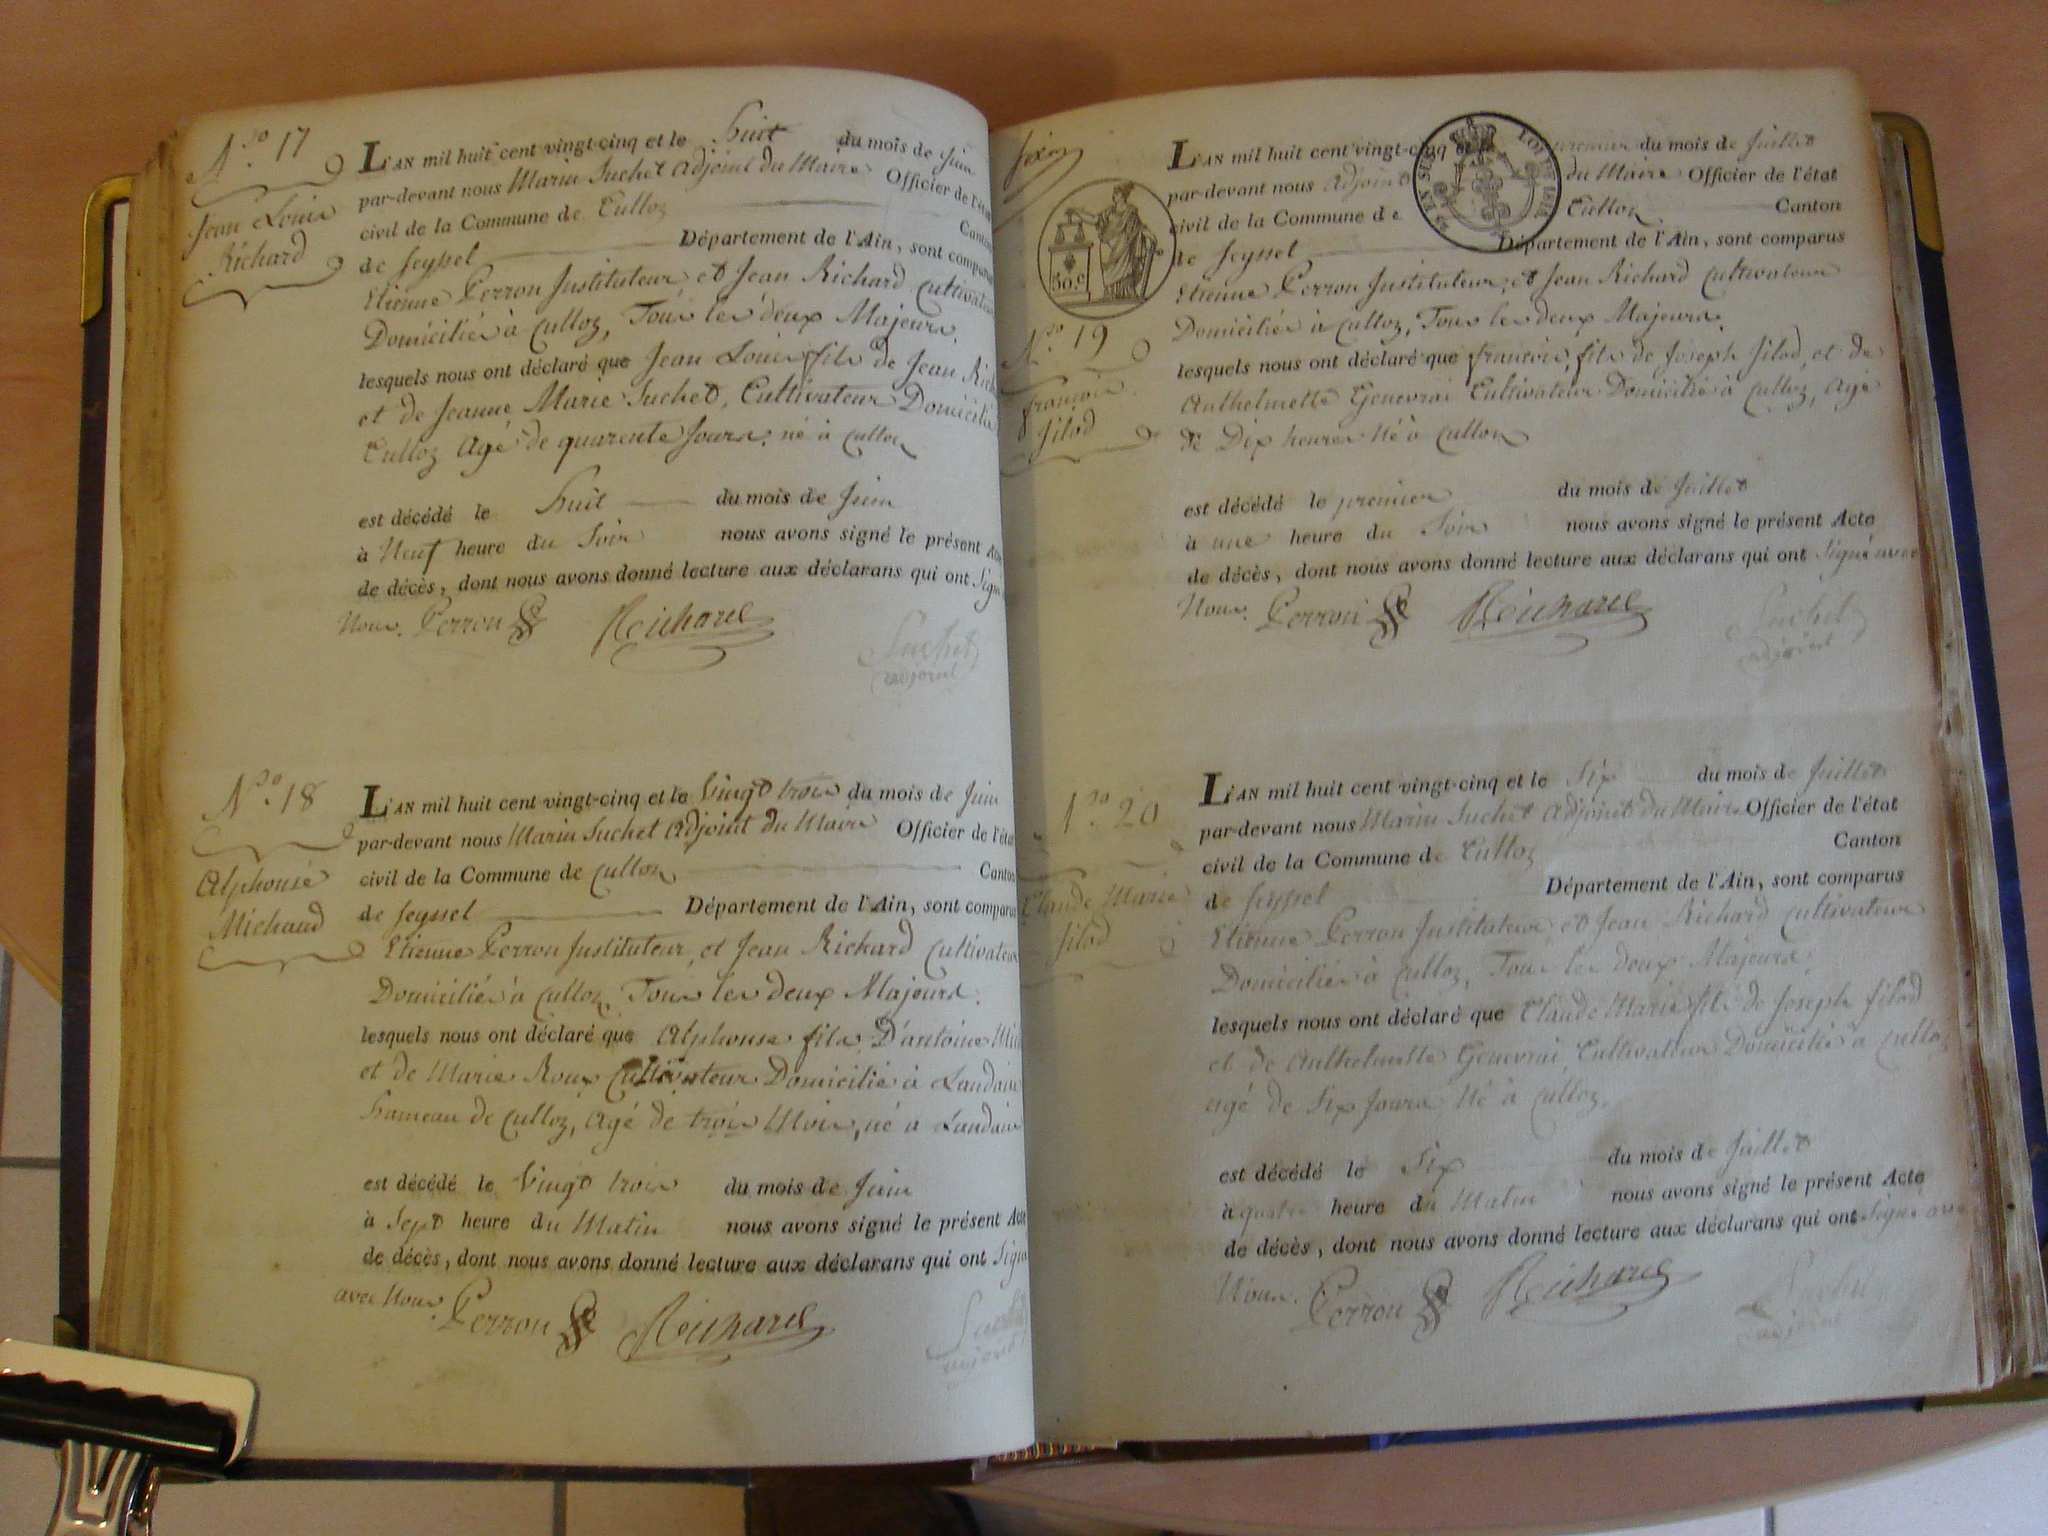 N.ro 17
Jean Louis
Richard
L'AN mil huit cent vingt-cinq et le huit du mois de Juin
par-devant nous Marin Suchet adjoint du Maire Officier de l'état
civil de la Commune de Culloz Canton
de Seyssel Département de l'Ain, sont comparus
Etienne Perron Instituteur et Jean Richard Cultivateur
Domiciliés à Culloz, Tous les deux Majeurs.
lesquels nous ont déclaré que Jean Louis fils de Jean Rich
et de Jeanne Marie Suchet, Cultivateur Domicilié
Culloz Agé de quarente Jours. né à Culloz
est décédé le huit du mois de Juin
à Neuf heure du Soir nous avons signé le présent Acte
de décès, dont nous avons donné lecture aux déclarans qui ont Signé
Nous. Perron Reicharel
Suchet
adjoint
N.ro 18
Alphonse
Michaud
L'AN mil huit cent vingt-cinq et le Vingt trois du mois de Juin
par-devant nous Marin Suchet Adjoint du Maire Officier de l'état
civil de la Commune de Culloz Canton
de Seyssel Département de l'Ain, sont comparus
Etienne Perron Instituteur, et Jean Richard Cultivateur
Domiciliés à Culloz, Tous les deux Majeurs.
lesquels nous ont déclaré que Alphonse fils D'antoine Mic
et de Marie Roux Cultivateur Domicilié à Landaise
hameau de Culloz, Agé de trois Mois, né à Landaise
est décédé le Vingt trois du mois de Juin
à Sept heure du Matin nous avons signé le présent Acte
de décès, dont nous avons donné lecture aux déclarans qui ont Signé
avec Nous. Perron Reicharel
Suchet
adjoint
50.c
LOI DE 1816
N.ro 19
francois
Jilod
L'AN mil huit cent vingt-cinq et le premier du mois de Juillet
par-devant nous Adjoint du Maire Officier de l'état
civil de la Commune de Culloz Canton
de Seyssel Département de l'Ain, sont comparus
Etienne Perron Instituteur, et Jean Richard Cultivateur
Domiciliés à Culloz, Tous les deux Majeurs.
lesquels nous ont déclaré que francois, fils de Joseph Jilod, et de
Anthelmette Genevrai Cultivateur Domicilié à Culloz, Agé
de Dix heures Né à Culloz
est décédé le premier du mois de Juillet
à une heure du Soir nous avons signé le présent Acte
de décès, dont nous avons donné lecture aux déclarans qui ont Signé avec
Nous. Perron Reicharel
Suchet
adjoint
N.ro 20
Claude Marie
Jilod
L'AN mil huit cent vingt-cinq et le Six du mois de Juillet
par-devant nous Marin Suchet Adjoint du Maire Officier de l'état
civil de la Commune de Culloz Canton
de Seyssel Département de l'Ain, sont comparus
Etienne Perron Instituteur et Jean Richard Cultivateur
Domiciliés à Culloz, Tous les deux Majeurs.
lesquels nous ont déclaré que Claude Marie fils de Joseph Jilod
et de Anthelmette Genevrai, Cultivateur Domicilié à Culloz
agé de Six Jours Né à Culloz.
est décédé le Six du mois de Juillet
à quatre heure du Matin nous avons signé le présent Acte
de décès, dont nous avons donné lecture aux déclarans qui ont Signé avec
Nous. Perron Reicharel
Suchet
adjoint